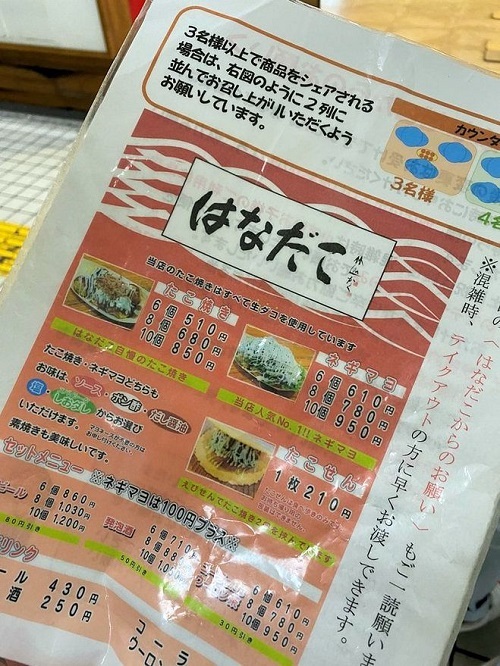 3名様以上で商品をシェアされる
場合は、右図のように２列に
並んでお召し上がりいただくよう
お願いしています。
カウンタ
3名様
4名
はなだこ
当店のたこ焼きはすべて生ダコを使用しています
たこ焼き
6個 510円
8個 680円
10個 850円
はなだこ自慢のたこ焼き
ネギマヨ
6個 610円
8個 780円
10個 950円
当店人気No.1!!ネギマヨ
たこ焼き・ネギマヨどちらも
お味は、ソース・ポン酢・だし醤油
塩・しおダレ からお選び
いただけます。
マヨネーズが不要の方は
お申し付けください
素焼きも美味しいです。
たこせん
1枚210円
えびせんでたこ焼き2個を挟んでいます
セットメニュー ※ネギマヨは100円プラス※
ビール
6個 860円
8個 1,030円
10個 1,200円
80円引き
発泡酒
6個 710円
50円引き
6個 610円
8個 780円
10個 950円
30円引き
リンク
ール 430円
酒 250円
コーラ
ウーロン
〈はなだこからのお願い〉もご一読願いま
※混雑時、テイクアウトの方に早くお渡しできます。